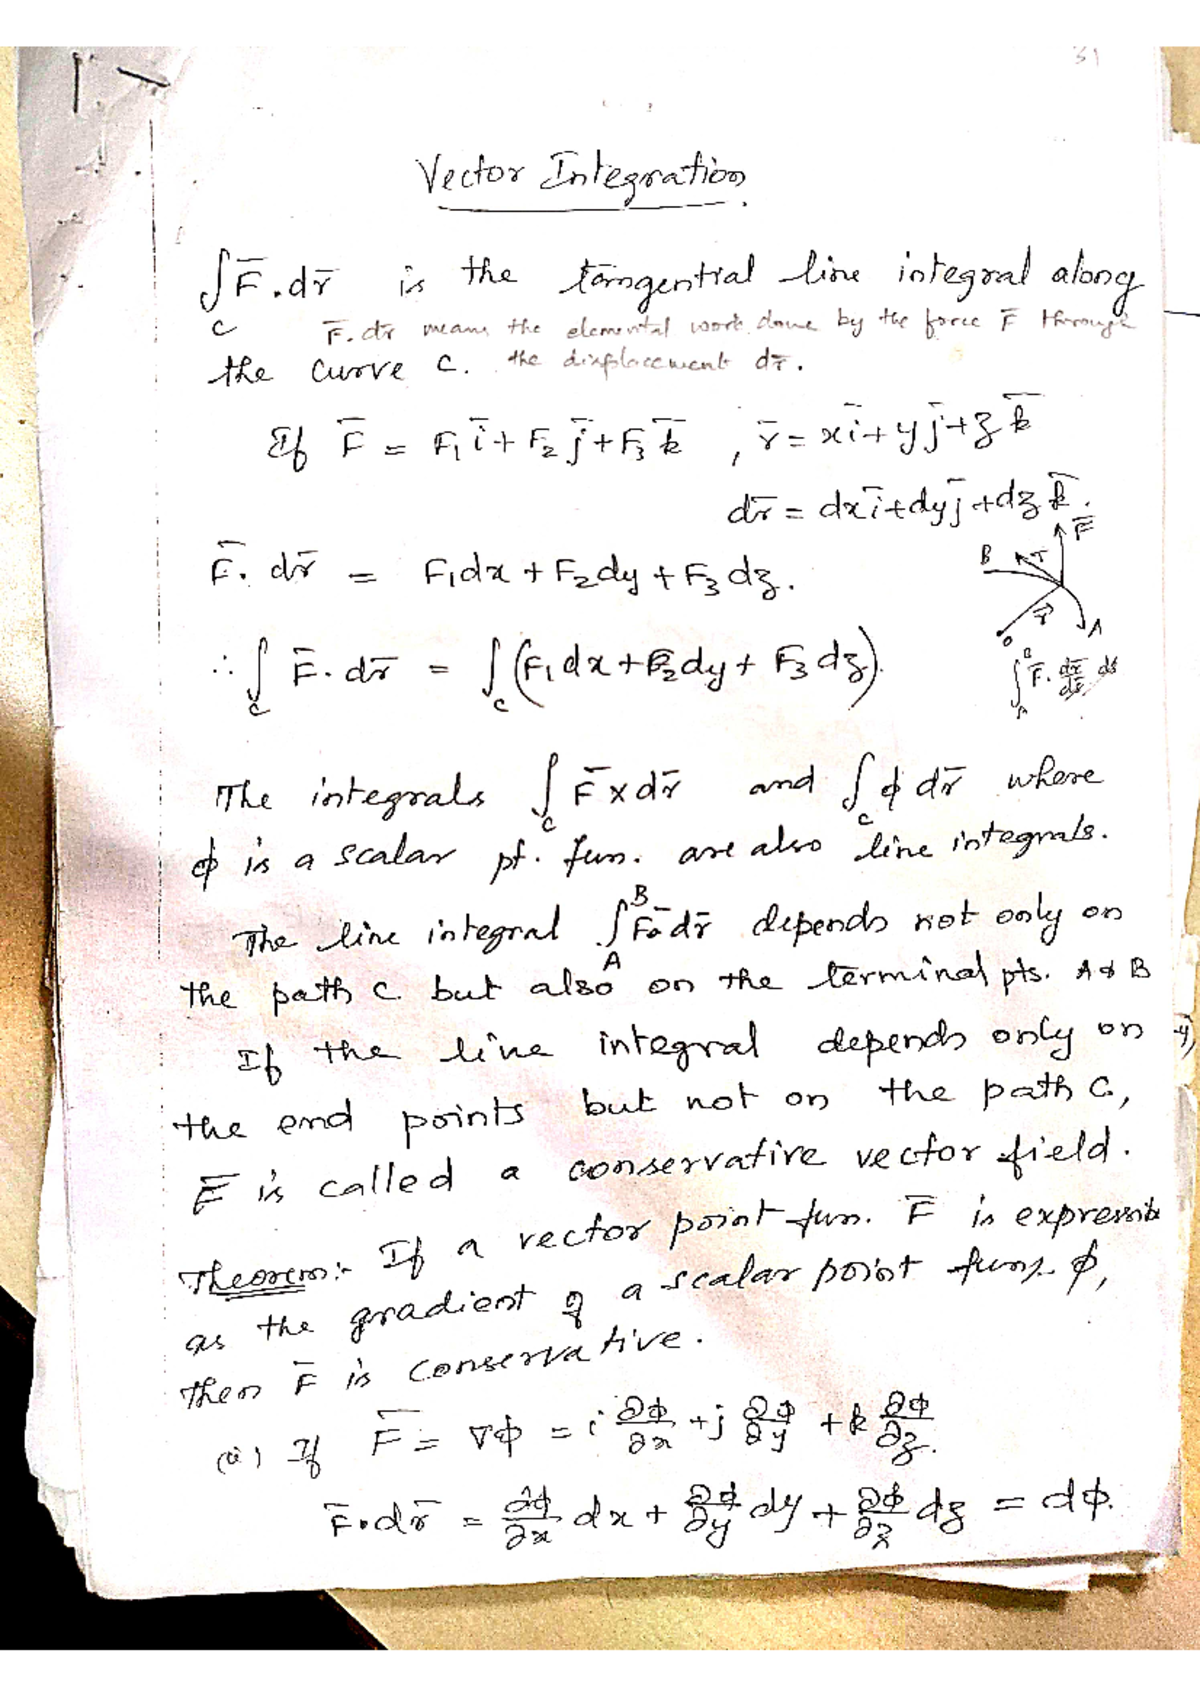 31
Vector Integration.
∫_C F̄.dr̄ is the tangential line integral along
F̄.dr̄ means the elemental work done by the force F̄ through
the curve C. the displacement dr̄.
If F̄ = F₁ī + F₂j̄ + F₃k̄ , r̄ = xī + yj̄ + zk̄
dr̄ = dxī + dyj̄ + dzk̄.
F̄
B T
F̄. dr̄ = F₁dx + F₂dy + F₃dz.
r̄ A
O
∴ ∫_C F̄. dr̄ = ∫_C (F₁dx + F₂dy + F₃dz).
∫_A^B F̄. dr̄/ds ds
The integrals ∫_C F̄ x dr̄ and ∫_C ϕ dr̄ where
ϕ is a scalar pt. fun. are also line integrals.
The line integral ∫_A^B F̄.dr̄ depends not only on
the path C but also on the terminal pts. A & B
If the line integral depends only on
the end points but not on the path C,
F̄ is called a conservative vector field.
Theorem:- If a vector point fun. F̄ is expressible
as the gradient of a scalar point func. ϕ,
then F̄ is conservative.
(i) If F̄ = ∇ϕ = i ∂ϕ/∂x + j ∂ϕ/∂y + k ∂ϕ/∂z.
F̄.dr̄ = ∂ϕ/∂x dx + ∂ϕ/∂y dy + ∂ϕ/∂z dz = dϕ.